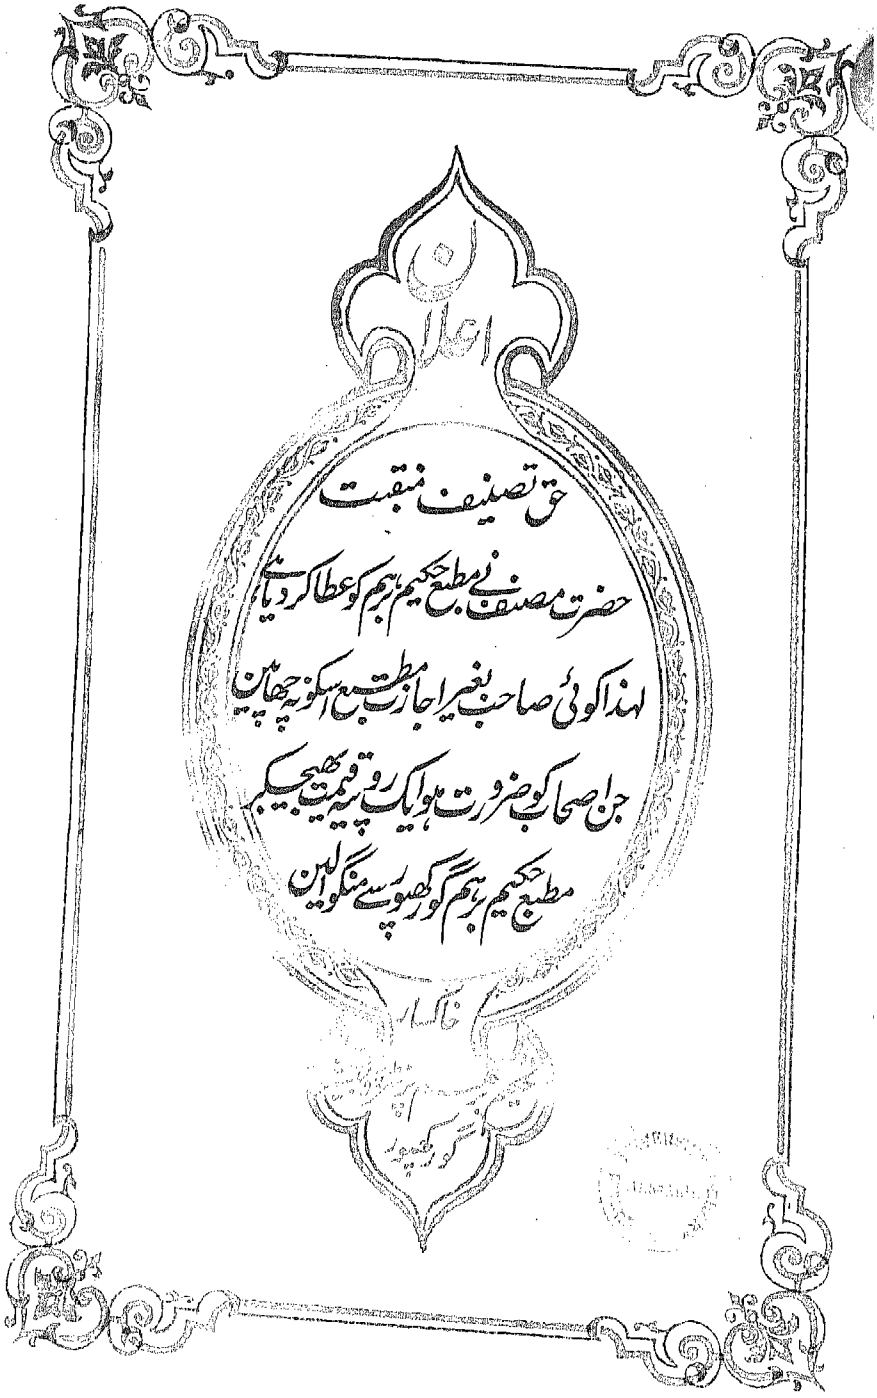 اعلان
حق تصنیف منقبت
حضرت مصنف نے مطبع حکیم برہم کو عطا کر دیا ہے
لہذا کوئی صاحب بغیر اجازت مطبع اسکو نہ چھاپین
جن اصحاب کو ضرورت ہو ایک روپیہ قیمت بھیجکر
مطبع حکیم برہم گورکھپور سے منگوا لین
خاکسار
حکیم برہم
گورکھپور